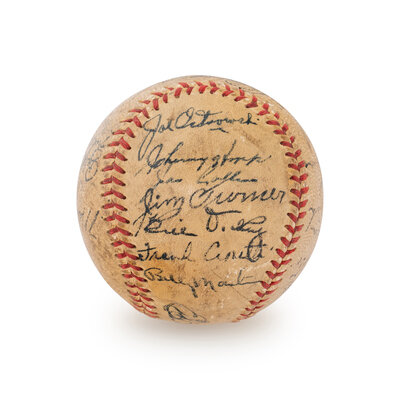 Joe Ostrowski
Johnny Hopp
Joe Collins
Jim Turner
Bill Dickey
Frank Crosetti
Billy Martin